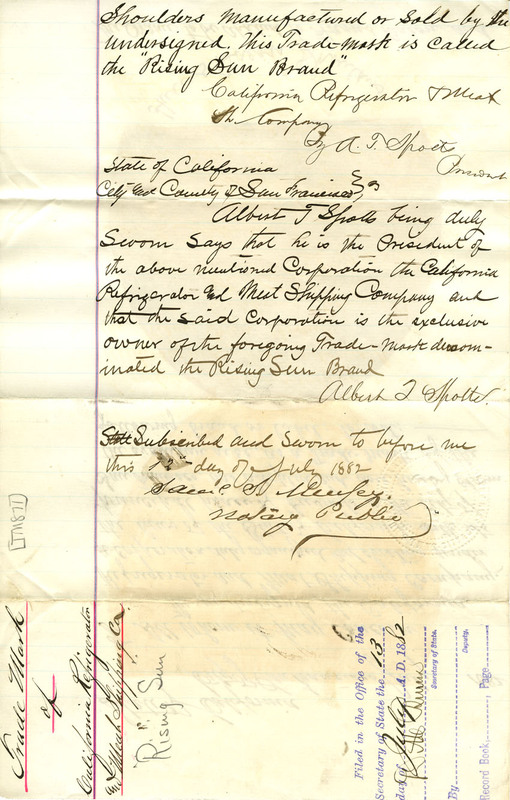 Shoulders manufactured or sold by the
undersigned. This Trade-mark is called
the "Rising Sun Brand"
California Refrigerator & Meat
Sh. Company
By A. T. Spotts
President
State of California
City and County of San Francisco } ss
Albert T Spotts being duly
Sworn says that he is the President of
the above mentioned Corporation the California
Refrigerator and Meat Shipping Company and
that the said Corporation is the exclusive
owner of the foregoing Trade-Mark denom-
inated the Rising Sun Brand
Albert T Spotts.
Subscribed and Sworn to before me
this 12th day of July 1882
Notary Public
[TM871]
Trade Mark
of
California Refrigerator
and Meat Shipping Co.
"Rising Sun"
Filed in the Office of the
Secretary of State the 13
day of July A. D. 1882
Secretary of State.
By Deputy.
Record Book, Page